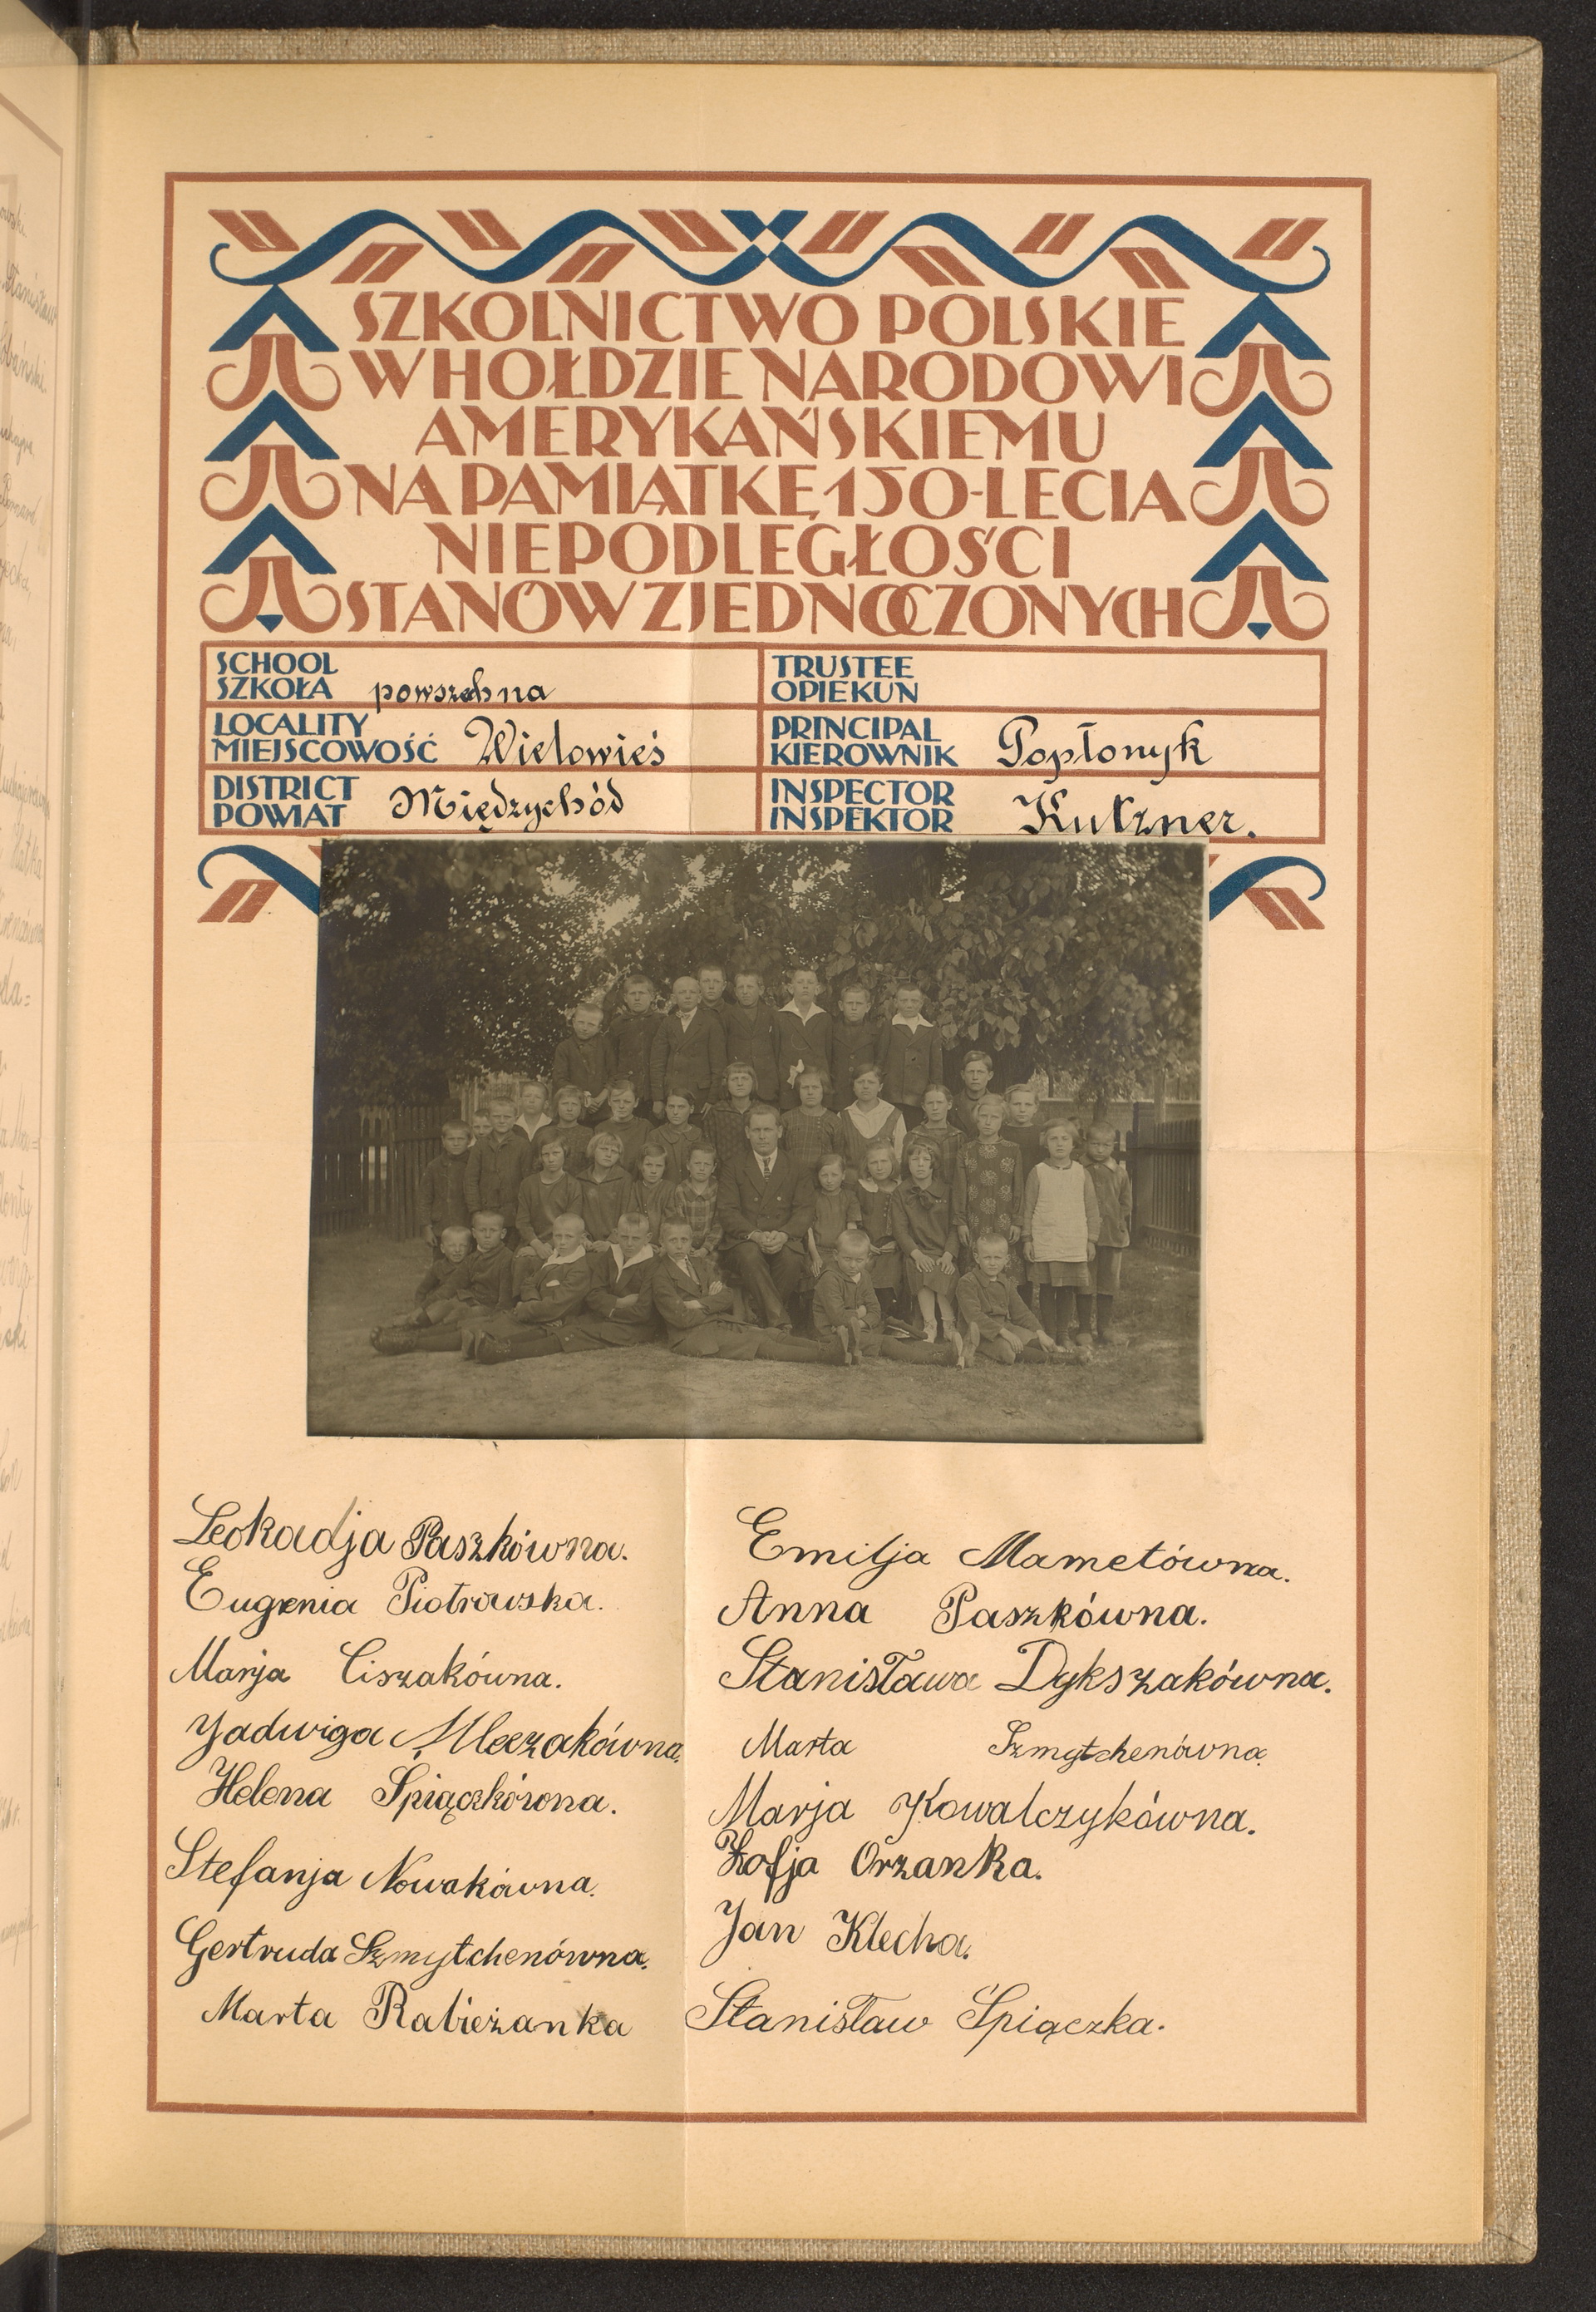 SZKOLNICTWO POLSKIE
W HOŁDZIE NARODOWI
AMERYKAŃSKIEMU
NA PAMIĄTKĘ 150-LECIA
NIEPODLEGŁOŚCI
STANÓW ZJEDNOCZONYCH
SCHOOL
SZKOŁA powszechna
TRUSTEE
OPIEKUN
LOCALITY
MIEJSCOWOŚĆ Wielowieś
PRINCIPAL
KIEROWNIK Popłonyk
DISTRICT
POWIAT Międzychód
INSPECTOR
INSPEKTOR Kutzner.
Leokadja Paszkówna.
Eugenia Piotrowska.
Marja Ciszakówna.
Jadwiga Mleczakówna.
Helena Spiączkówna.
Stefanja Nowakówna.
Gertruda Szmytchenówna.
Marta Rabieżanka
Emilja Mametówna.
Anna Paszkówna.
Stanisława Dykszakówna.
Marta Szmytchenówna.
Marja Kowalczykówna.
Zofja Orzanka.
Jan Klecha.
Stanisław Spiączka.